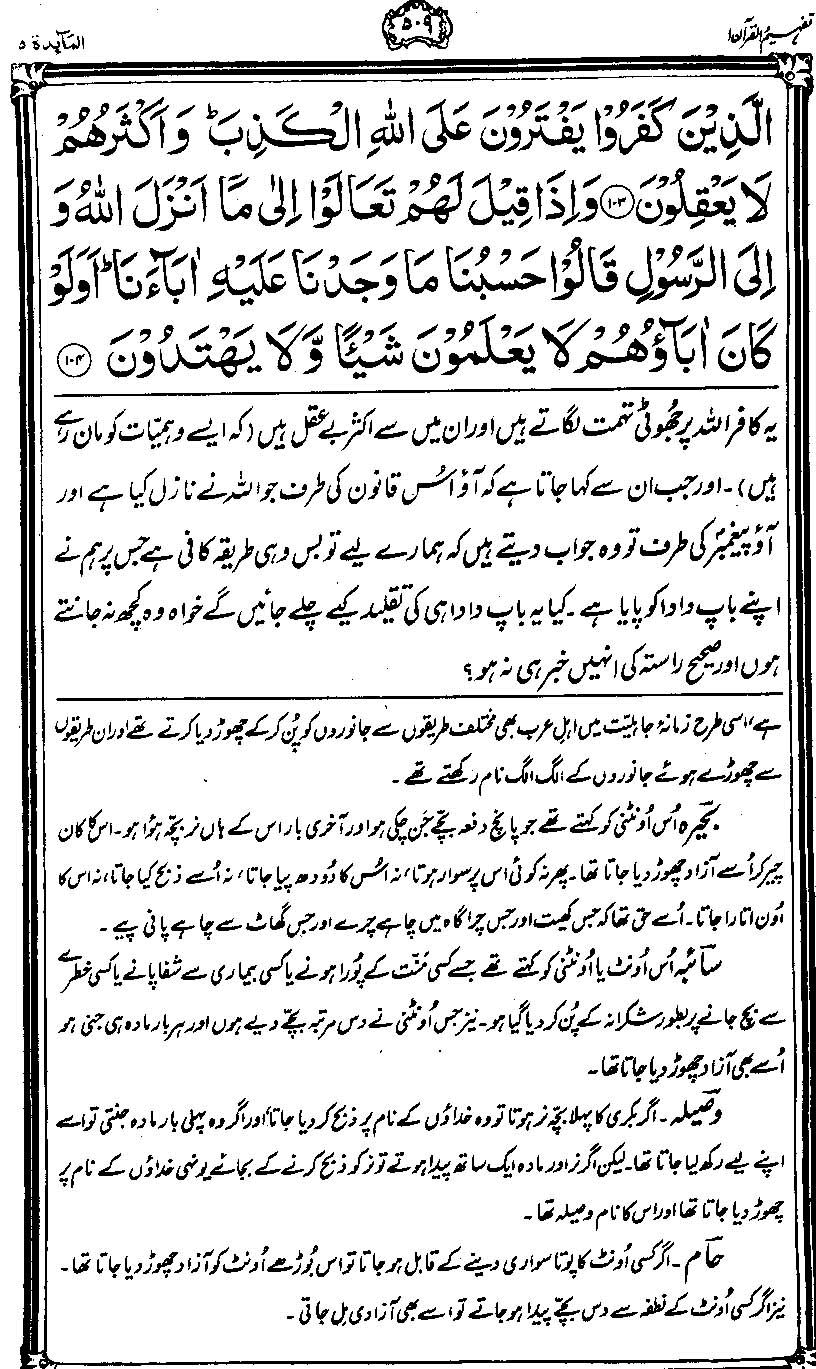 تفہیم القرآن ۱
۵۰۹
المآیدة ۵
الَّذِيْنَ كَفَرُوْا يَفْتَرُوْنَ عَلَى اللّٰهِ الْكَذِبَ ؕ وَ اَكْثَرُهُمْ
لَا يَعْقِلُوْنَ ۝۱۰۳ وَاِذَا قِيْلَ لَهُمْ تَعَالَوْا اِلٰى مَاۤ اَنْزَلَ اللّٰهُ وَ
اِلَى الرَّسُوْلِ قَالُوْا حَسْبُنَا مَا وَجَدْنَا عَلَيْهِ اٰبَآءَنَا ؕ اَوَلَوْ
كَانَ اٰبَآؤُهُمْ لَا يَعْلَمُوْنَ شَيْـًٔا وَّلَا يَهْتَدُوْنَ ۝۱۰۴
یہ کافر اللہ پر جھوٹی تہمت لگاتے ہیں اور ان میں سے اکثر بے عقل ہیں (کہ ایسے وہمیّات کو مان رہے
ہیں)۔ اور جب ان سے کہا جاتا ہے کہ آؤ اُس قانون کی طرف جو اللہ نے نازل کیا ہے اور
آؤ پیغمبرؐ کی طرف تو وہ جواب دیتے ہیں کہ ہمارے لیے تو بس وہی طریقہ کافی ہے جس پر ہم نے
اپنے باپ دادا کو پایا ہے۔ کیا یہ باپ دادا ہی کی تقلید کیے چلے جائیں گے خواہ وہ کچھ نہ جانتے
ہوں اور صحیح راستہ کی انہیں خبر ہی نہ ہو؟
ہے، اسی طرح زمانۂ جاہلیّت میں اہلِ عرب بھی مختلف طریقوں سے جانوروں کو پُن کر کے چھوڑ دیا کرتے تھے اور ان طریقوں
سے چھوڑے ہوئے جانوروں کے الگ الگ نام رکھتے تھے۔
بحیرہ اُس اُونٹنی کو کہتے تھے جو پانچ دفعہ بچّے جَن چکی ہو اور آخری بار اس کے ہاں نر بچّہ ہُوا ہو۔ اس کا کان
چیر کر اُسے آزاد چھوڑ دیا جاتا تھا۔ پھر نہ کوئی اس پر سوار ہوتا، نہ اُس کا دُودھ پیا جاتا، نہ اُسے ذبح کیا جاتا، نہ اس کا
اُون اتارا جاتا۔ اُسے حق تھا کہ جس کھیت اور جس چراگاہ میں چاہے چرے اور جس گھاٹ سے چاہے پانی پیے۔
سائبہ اُس اُونٹ یا اُونٹنی کو کہتے تھے جسے کسی مَنّت کے پُورا ہونے یا کسی بیماری سے شفا پانے یا کسی خطرے
سے بچ جانے پر بطور شکرانہ کے پُن کر دیا گیا ہو۔ نیز جس اُونٹنی نے دس مرتبہ بچّے دیے ہوں اور ہر بار مادہ ہی جنی ہو
اُسے بھی آزاد چھوڑ دیا جاتا تھا۔
وصیلہ۔ اگر بکری کا پہلا بچّہ نر ہوتا تو وہ خداؤں کے نام پر ذبح کر دیا جاتا، اور اگر وہ پہلی بار مادہ جنتی تو اسے
اپنے لیے رکھ لیا جاتا تھا۔ لیکن اگر نر اور مادہ ایک ساتھ پیدا ہوتے تو نر کو ذبح کرنے کے بجائے یونہی خداؤں کے نام پر
چھوڑ دیا جاتا تھا اور اس کا نام وصیلہ تھا۔
حام۔ اگر کسی اُونٹ کا پوتا سواری دینے کے قابل ہو جاتا تو اس بُوڑھے اُونٹ کو آزاد چھوڑ دیا جاتا تھا۔
نیز اگر کسی اُونٹ کے نطفہ سے دس بچّے پیدا ہو جاتے تو اسے بھی آزادی مل جاتی۔